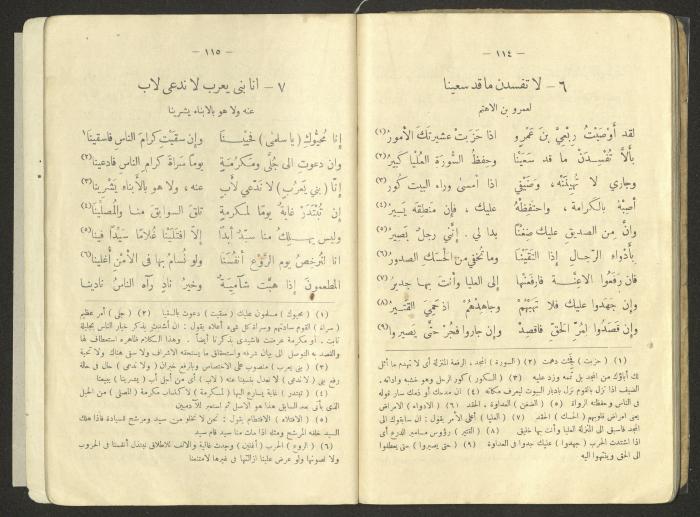 — ١١٤ —
٦ — لا تفسدن ما قد سعينا
لعمرو بن الاهتم
لقد أوصَيْتُ رِبْعِيَّ بنَ عَمْرٍو اذا حَزَبَتْ عشيرتَكَ الأمورُ (١)
بأَلاَّ تُفْسِدَنْ ما قد سَعَيْنا وحفظُ السَّورَةِ العُلْيا كبيرُ (٢)
وجاري لا تُهينَنْه، وضَيْفي اذا امسى وراء البيت كُورُ (٣)
أصِبْهُ بالكرامة، واحتفظهُ عليك، فإن منطقَه يسيرُ (٤)
وانَّ من الصديقِ عليك ضِغْناً بدا لي. إنَّني رجلٌ بَصيرُ (٥)
بأَدْواءِ الرّجالِ إذا التقَيْنا وما تُخفي من الحَسَك الصدورُ (٦)
فان رَفَعُوا الاعِنَّةَ فارفَعَنْها إلى العليا وأنتَ بها جديرُ (٧)
وإن جَهَدوا عليك فلا تَهَبْهُم وجاهِدْهُم اذ حَمِيَ القَتيرُ (٨)
وإن قَصَدُوا لمُرِّ الحَقِّ فاقصِدْ وإن جاروا فَجُرْ حتَّى يَصيروا (٩)
(١) (حزبت) دهمت (٢) (السورة) المجد، الرفعة المنزلة أي لا تهدم ما أثل
لك أباؤك من المجد بل تممه وزد عليه (٣) (الكور) كور الرحل وهو خشبه واداته.
الضيف اذا نزل بالقوم نزل بادبار البيوت ليعرف مكانه (٤) ان مدحك أو ذمك سار قوله
في الناس وحفظته الرواة (٥) (الضغن) العداوة، الحقد (٦) (الادواء) الامراض
يعني امراض قلوبهم (الحسك) الحقد (٧) (العليا) أعلى الأمر يقول: ان سابقوك الى
المجد فاسبق الى المنزلة العليا وأنت بها خليق (٨) (القتير) رؤوس مسامير الدرع أي
اذا اشتدت الحرب (جهدوا) عليك جدوا في العداوة (٩) (حتى يصيروا) حتى يعطفوا
الى الحق وينتهوا اليه
— ١١٥ —
٧ — انا بني يعرب لا ندعى لاب
عنه ولا هو بالابناء يشرينا
إنا مُحَيُّوكِ (يا سلمى) فحَيِّينَا وإن سقَيتِ كرامَ الناس فاسقينا (١)
وان دعوتِ الى جُلَّى ومَكرُمةٍ يوماً سَراةَ كرامِ الناسِ فادعينا (٢)
إنّا (بني يَعرُبٍ) لا نَدَّعي لأَبٍ عنه، ولا هو بالأبناءِ يَشْرينا (٣)
إن تُبْتَدَرْ غايةٌ يوماً لمكرمةٍ تلقَ السوابقَ منا والمُصَلِّينا (٤)
وليس يهلِكُ منا سيّدٌ أبداً إلا افتَلَيْنا غلاماً سَيِّداً فينا (٥)
انا لنُرخِصُ يوم الرَّوْعِ أنفُسَنا ولو نُسامُ بها في الأمْنِ أُغلينا (٦)
المطعمونَ إذا هبَّت شآميَةٌ وخيرُ نادٍ رآه الناسُ نادينا
(١) (محيوك) مسلمون عليك (سقيت) دعوت بالسقيا (٢) (جلى) أمر عظيم
(سراة) القوم سادتهم وسراة كل شيء أعلاه يقول: ان أشدتِ بذكر خيار الناس بجليلة
نابت. أو مكرمة عرضت فاشيدي بذكرنا أيضاً. وهذا الكلام ظاهره استعطاف لها
والقصد به التوصل الى بيان شرفه واستحقاق ما يستحقه الاشراف ولا سقي هناك ولا تحية
(٣) (بني يعرب) منصوب على الاختصاص وبالرفع خبران (ولا ندعي) حال في حالة
رفع بني (لا ندعي) لا نعدل بنسبنا عنه (لاب) أي من أجل أب (يشرينا) يبيعنا
(٤) (تبتدر) غاية يسارع اليها (لمكرمة) لاكتساب مكرمة (المصلي) من الخيل
الذي يأتي بعد السابق هذا هو الاصل ثم استعير للآدميين
(٥) (الافتلاء) الافتطام يقول: نحن لا نخلو من سيد ومرشح للسيادة فاذا هلك
السيد خلفه المرشح ومثله اذا مات منا سيد قام سيد
(٦) (الروع) الحرب (أغلين) وجدت غالية والالف للاطلاق نبتذل أنفسنا في الحروب
ولا نصونها ولو عرض علينا اذالتها في غيرها لامتنعنا